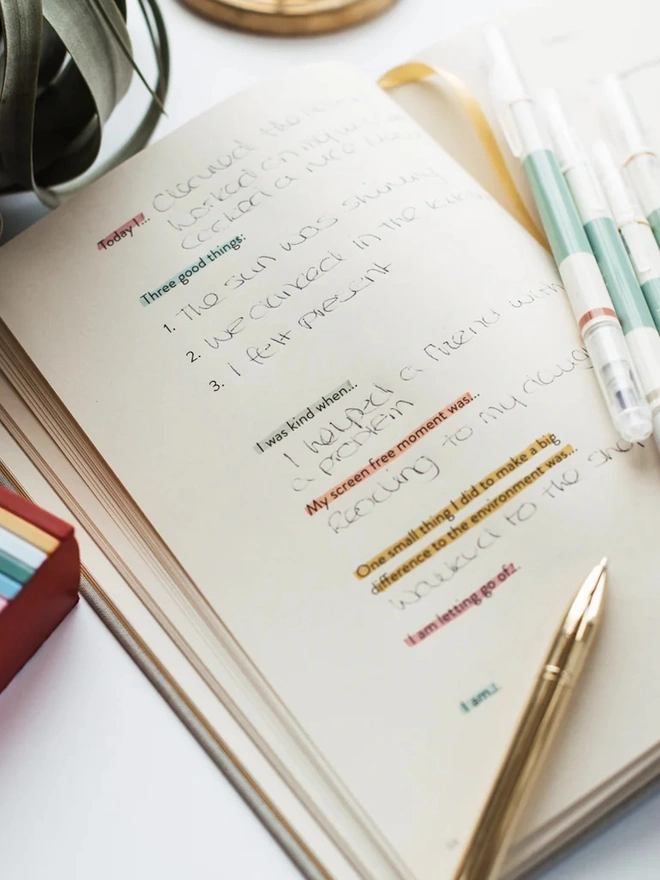 Today I... Cleaned the
worked on my
cooked a nice
Three good things:
1. The sun was shining
2. we danced in the
3. I felt present
I was kind when...
I helped a friend with
a problem
My screen free moment was...
Reading to my
One small thing I did to make a big
difference to the environment was...
walked to the
I am letting go of:
I am...